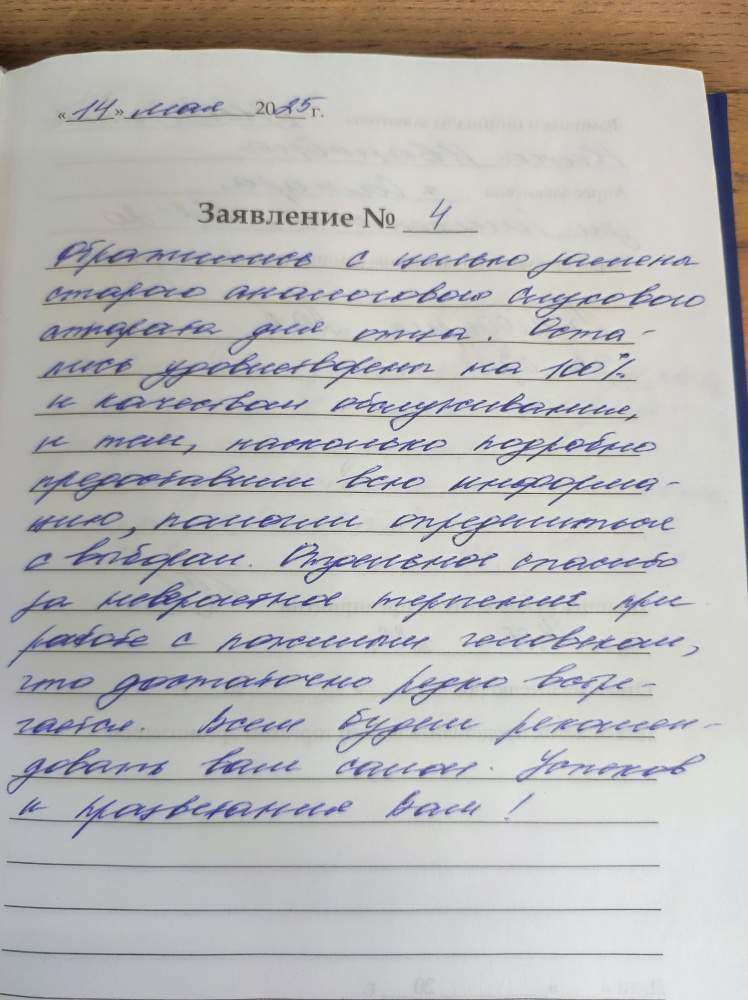 «14» мая 2025 г.
Заявление № 4
Обратились с целью замены
старого аналогового слухового
аппарата для отца. Оста-
лись удовлетворены на 100%
и качеством обслуживания,
и тем, насколько подробно
предоставили всю информа-
цию, помогли определиться
с выбором. Отдельное спасибо
за невероятное терпение при
работе с пожилым человеком,
что достаточно редко встре-
чается. Всем будем рекомен-
довать ваш салон. Успехов
и процветания Вам!